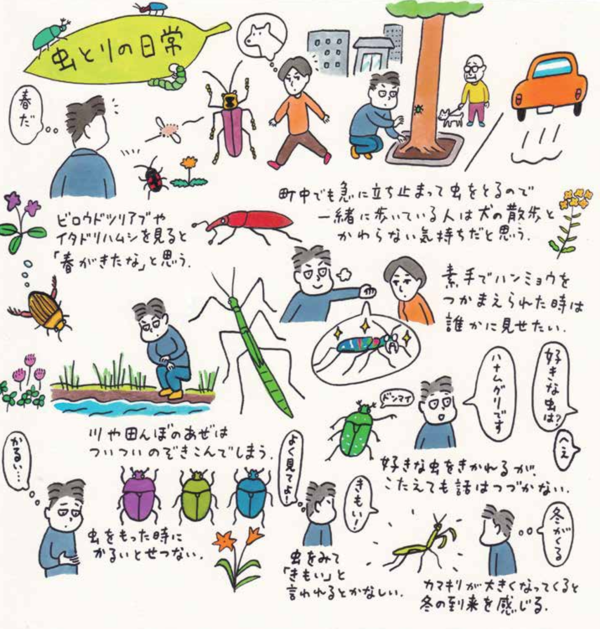 虫とりの日常
春だ
ビロウドツリアブや
イタドリハムシを見ると
「春がきたな」と思う。
町中でも急に立ち止まって虫をとるので
一緒に歩いている人は犬の散歩と
かわらない気持ちだと思う。
素手でハンミョウを
つかまえられた時は
誰かに見せたい。
川や田んぼのあぜは
ついついのぞきこんでしまう。
好きな虫は?
ハナムグリです
へぇ
ドンマイ
好きな虫をきかれるが、
こたえても話はつづかない。
かるい…
虫をもった時に
かるいとせつない。
よく見てよ!
きもい!
虫をみて
「きもい」と
言われるとかなしい。
冬がくる
カマキリが大きくなってくると
冬の到来を感じる。